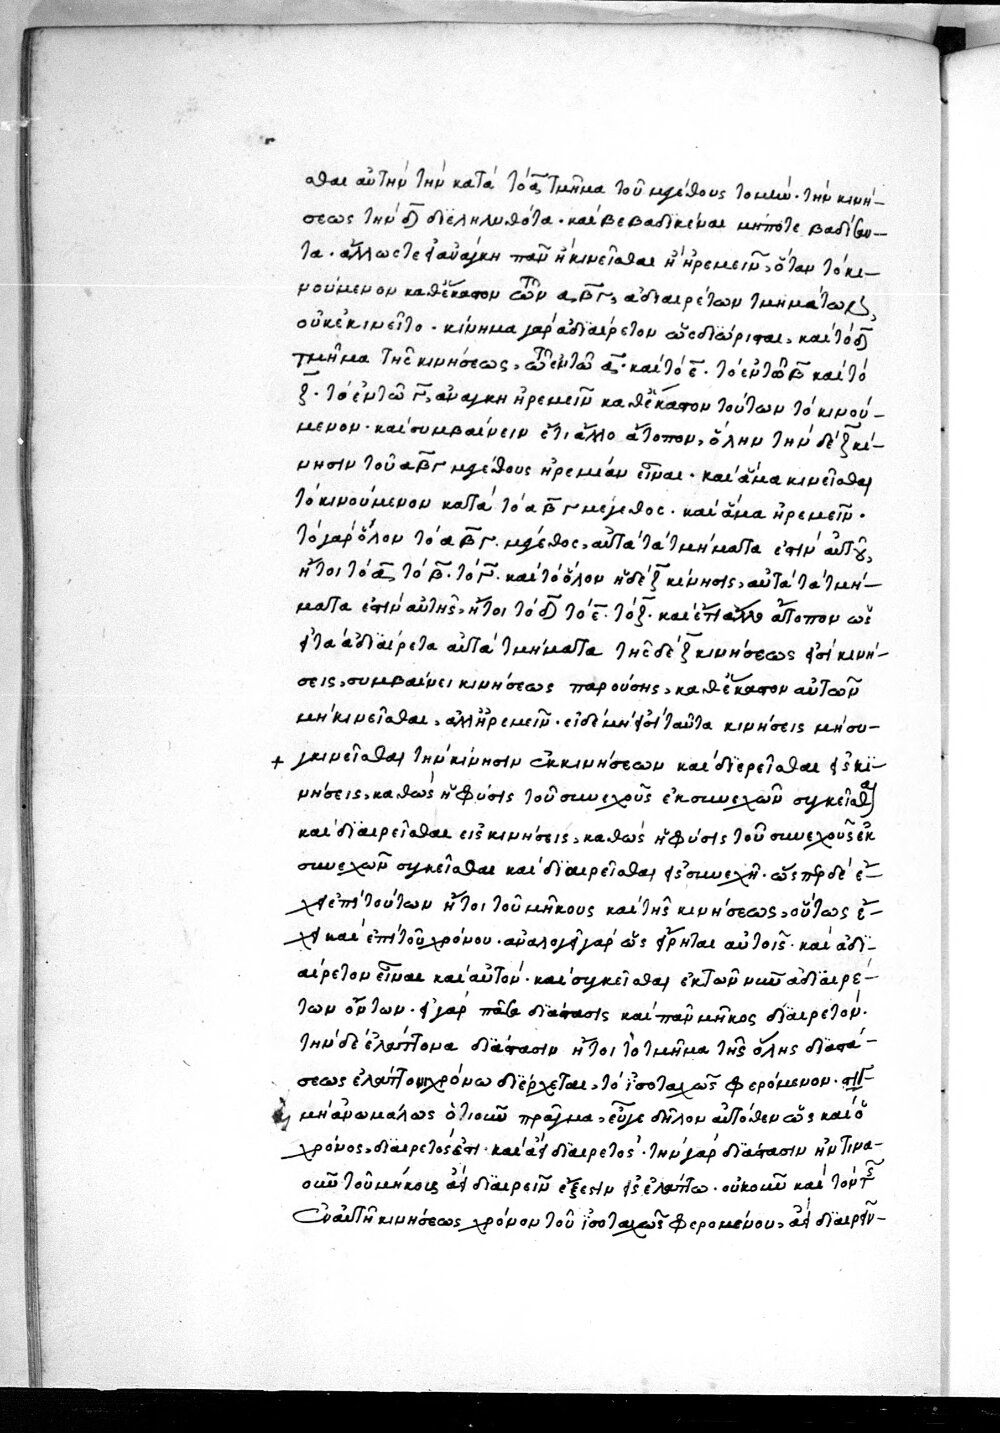 σθαι αὐτὴν τὴν κατὰ τὸ ᾱ τμῆμα τοῦ μεγέθους τομήν· τὴν κινή-
σεως τὴν δ̄ διεληλυθότα· καὶ βεβαδικέναι μήποτε βαδίζον-
τα· ἄλλως τε εἰ ἀνάγκη πᾶν ἢ κινεῖσθαι ἢ ἠρεμεῖν, ὅταν τὸ κι-
νούμενον καθ' ἕκαστον τῶν α, β̄ γ̄, ἀδιαιρέτων τμημάτων,
οὐκ ἐκινεῖτο· κίνημα γὰρ ἀδιαίρετον ὡς διώρισται, καὶ τὸ δ̄
τμῆμα τῆς κινήσεως, τῷ ἐν τῷ ᾱ· καὶ τὸ ε̄· τὸ ἐν τῷ β̄ καὶ τὸ
ξ̄· τὸ ἐν τῷ γ̄, ἀνάγκη ἠρεμεῖν καθ' ἕκαστον τούτων τὸ κινού-
μενον· καὶ συμβαίνειν ἔτι ἄλλο ἄτοπον, ὅλην τὴν δ ε ξ̄ κί-
νησιν τοῦ α β̄ γ μεγέθους ἠρεμίαν εἶναι· καὶ ἅμα κινεῖσθαι
τὸ κινούμενον κατὰ τὸ α β̄ γ μέγεθος· καὶ ἅμα ἠρεμεῖν·
τὸ γὰρ ὅλον τὸ α β̄ γ· μέγεθος, αὐτὰ τὰ τμήματα ἐστὶν αὐτοῦ,
ἤτοι τὸ ᾱ, τὸ β̄· τὸ γ̄· καὶ τὸ ὅλον ἡ δ ε ξ̄ κίνησις, αὐτὰ τὰ τμή-
ματα ἐστὶν αὐτῆς, ἤτοι τὸ δ̄ τὸ ε̄· τὸ ξ̄· καὶ ἔτι ἄλλο ἄτοπον ὡς
εἰ τὰ ἀδιαίρετα αὐτὰ τμήματα τῆς δ ε ξ̄ κινήσεως εἰσὶ κινή-
σεις, συμβαίνει κινήσεως παρούσης, καθ' ἕκαστον αὐτῶν
μὴ κινεῖσθαι, ἀλλ' ἠρεμεῖν· εἰ δὲ μὴ εἰσὶ ταῦτα κινήσεις μὴ συ-
+ γκινεῖσθαι τὴν κίνησιν ἐκ κινήσεων καὶ διερεῖσθαι εἰς κι-
νήσεις, καθὼς ἡ φύσις τοῦ συνεχοῦς ἐκ συνεχῶν συγκεῖσθαι
καὶ διαιρεῖσθαι εἰς κινήσεις, καθὼς ἡ φύσις τοῦ συνεχοῦς ἐκ
συνεχῶν συγκεῖσθαι καὶ διαιρεῖσθαι εἰς συνεχῆ· ὥσπερ δὲ ἔ-
χει ἐπὶ τούτων ἤτοι τοῦ μήκους καὶ τῆς κινήσεως, οὕτως ἔ-
χει καὶ ἐπὶ τοῦ χρόνου· ἀναλογεῖ γὰρ ὡς εἴρηται αὐτοῖς· καὶ ἀδι-
αίρετον εἶναι καὶ αὐτόν· καὶ συγκεῖσθαι ἐκ τῶν νῦν ἀδιαιρέ-
των ὄντων· εἰ γὰρ πᾶσα διάστασις καὶ πᾶν μῆκος διαιρετόν·
τὴν δὲ ἐλάττονα διάστασιν ἤτοι τὸ τμῆμα τῆς ὅλης διαστά-
σεως ἐλάττονι χρόνῳ διέρχεται, τὸ ἰσοταχῶς φερόμενον·
μὴ ἀνωμάλως ὁτιοῦν πρᾶγμα, εὖγε δῆλον αὐτόθεν ὡς καὶ ὁ
χρόνος, διαιρετός ἐστι· καὶ ἀεὶ διαιρετός· τὴν γὰρ διάστασιν ἡντινα-
οῦν τοῦ μήκους ἀεὶ διαιρεῖν ἔξεστιν εἰς ἐλάττω· οὐκοῦν καὶ τὸν τῆς
ἐν αὐτῇ κινήσεως χρόνον τοῦ ἰσοταχῶς φερομένου, ἀεὶ διαιρεῖν-